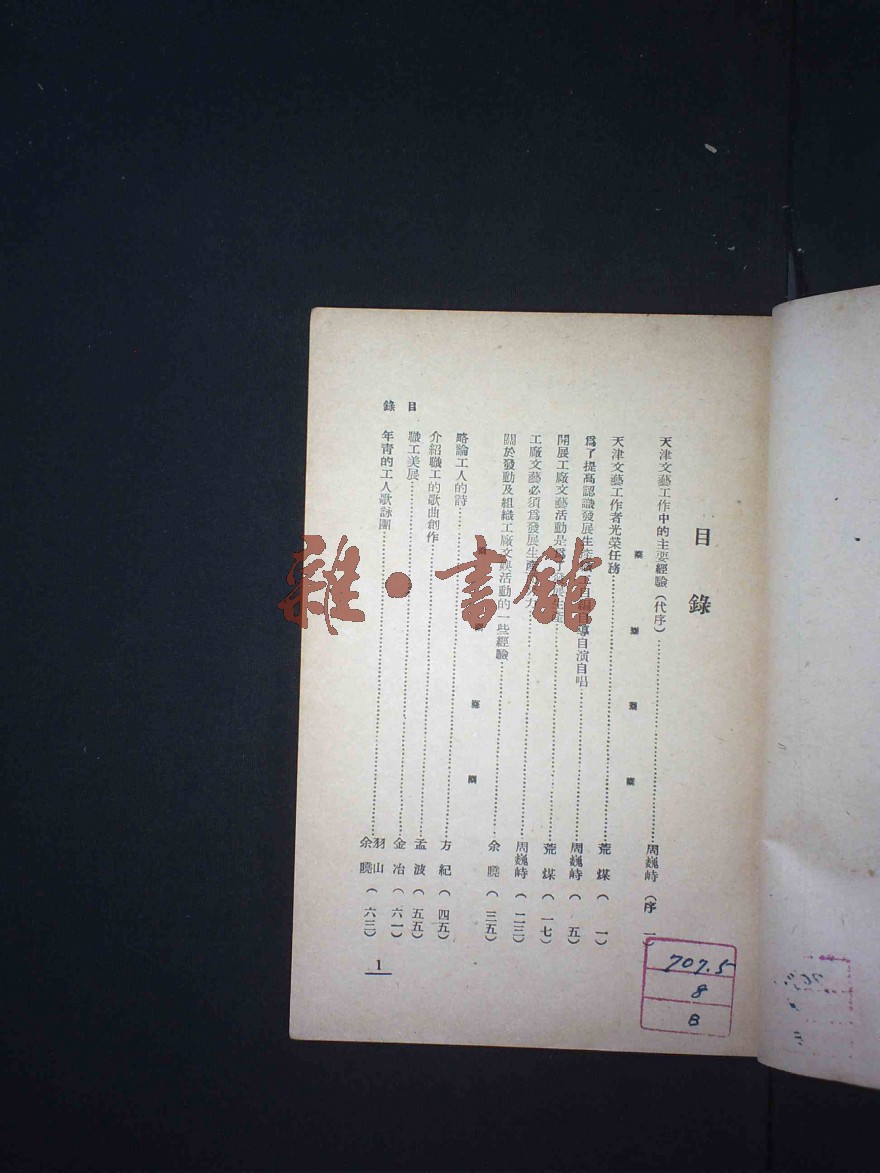 目錄
天津文藝工作中的主要經驗（代序）……周巍峙（序 一）
天津文藝工作者光榮任務……荒煤（一）
爲了提高認識發展生產 自演自唱……周巍峙（五）
開展工廠文藝活動是爲 展生產……荒煤（一七）
工廠文藝必須爲發展生產 力……周巍峙（二三）
關於發動及組織工廠文藝活動的一些經驗……余曉（三五）
略論工人的詩……方紀（四五）
介紹職工的歌曲創作……孟波（五五）
職工美展……金冶（六一）
年青的工人歌詠團……羽山 余曉（六三）
目錄
1
707.5
8
B
雜·書館